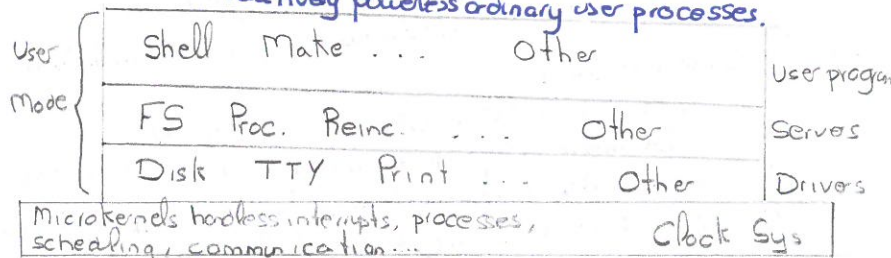 powerless ordinary user processes.
Shell Make ... Other
User
Mode
User program
FS Proc. Reinc. ... Other
Serves
Disk TTY Print ... Other
Drivers
Microkernels handless interrupts, processes,
schealing, communication...
Clock Sys